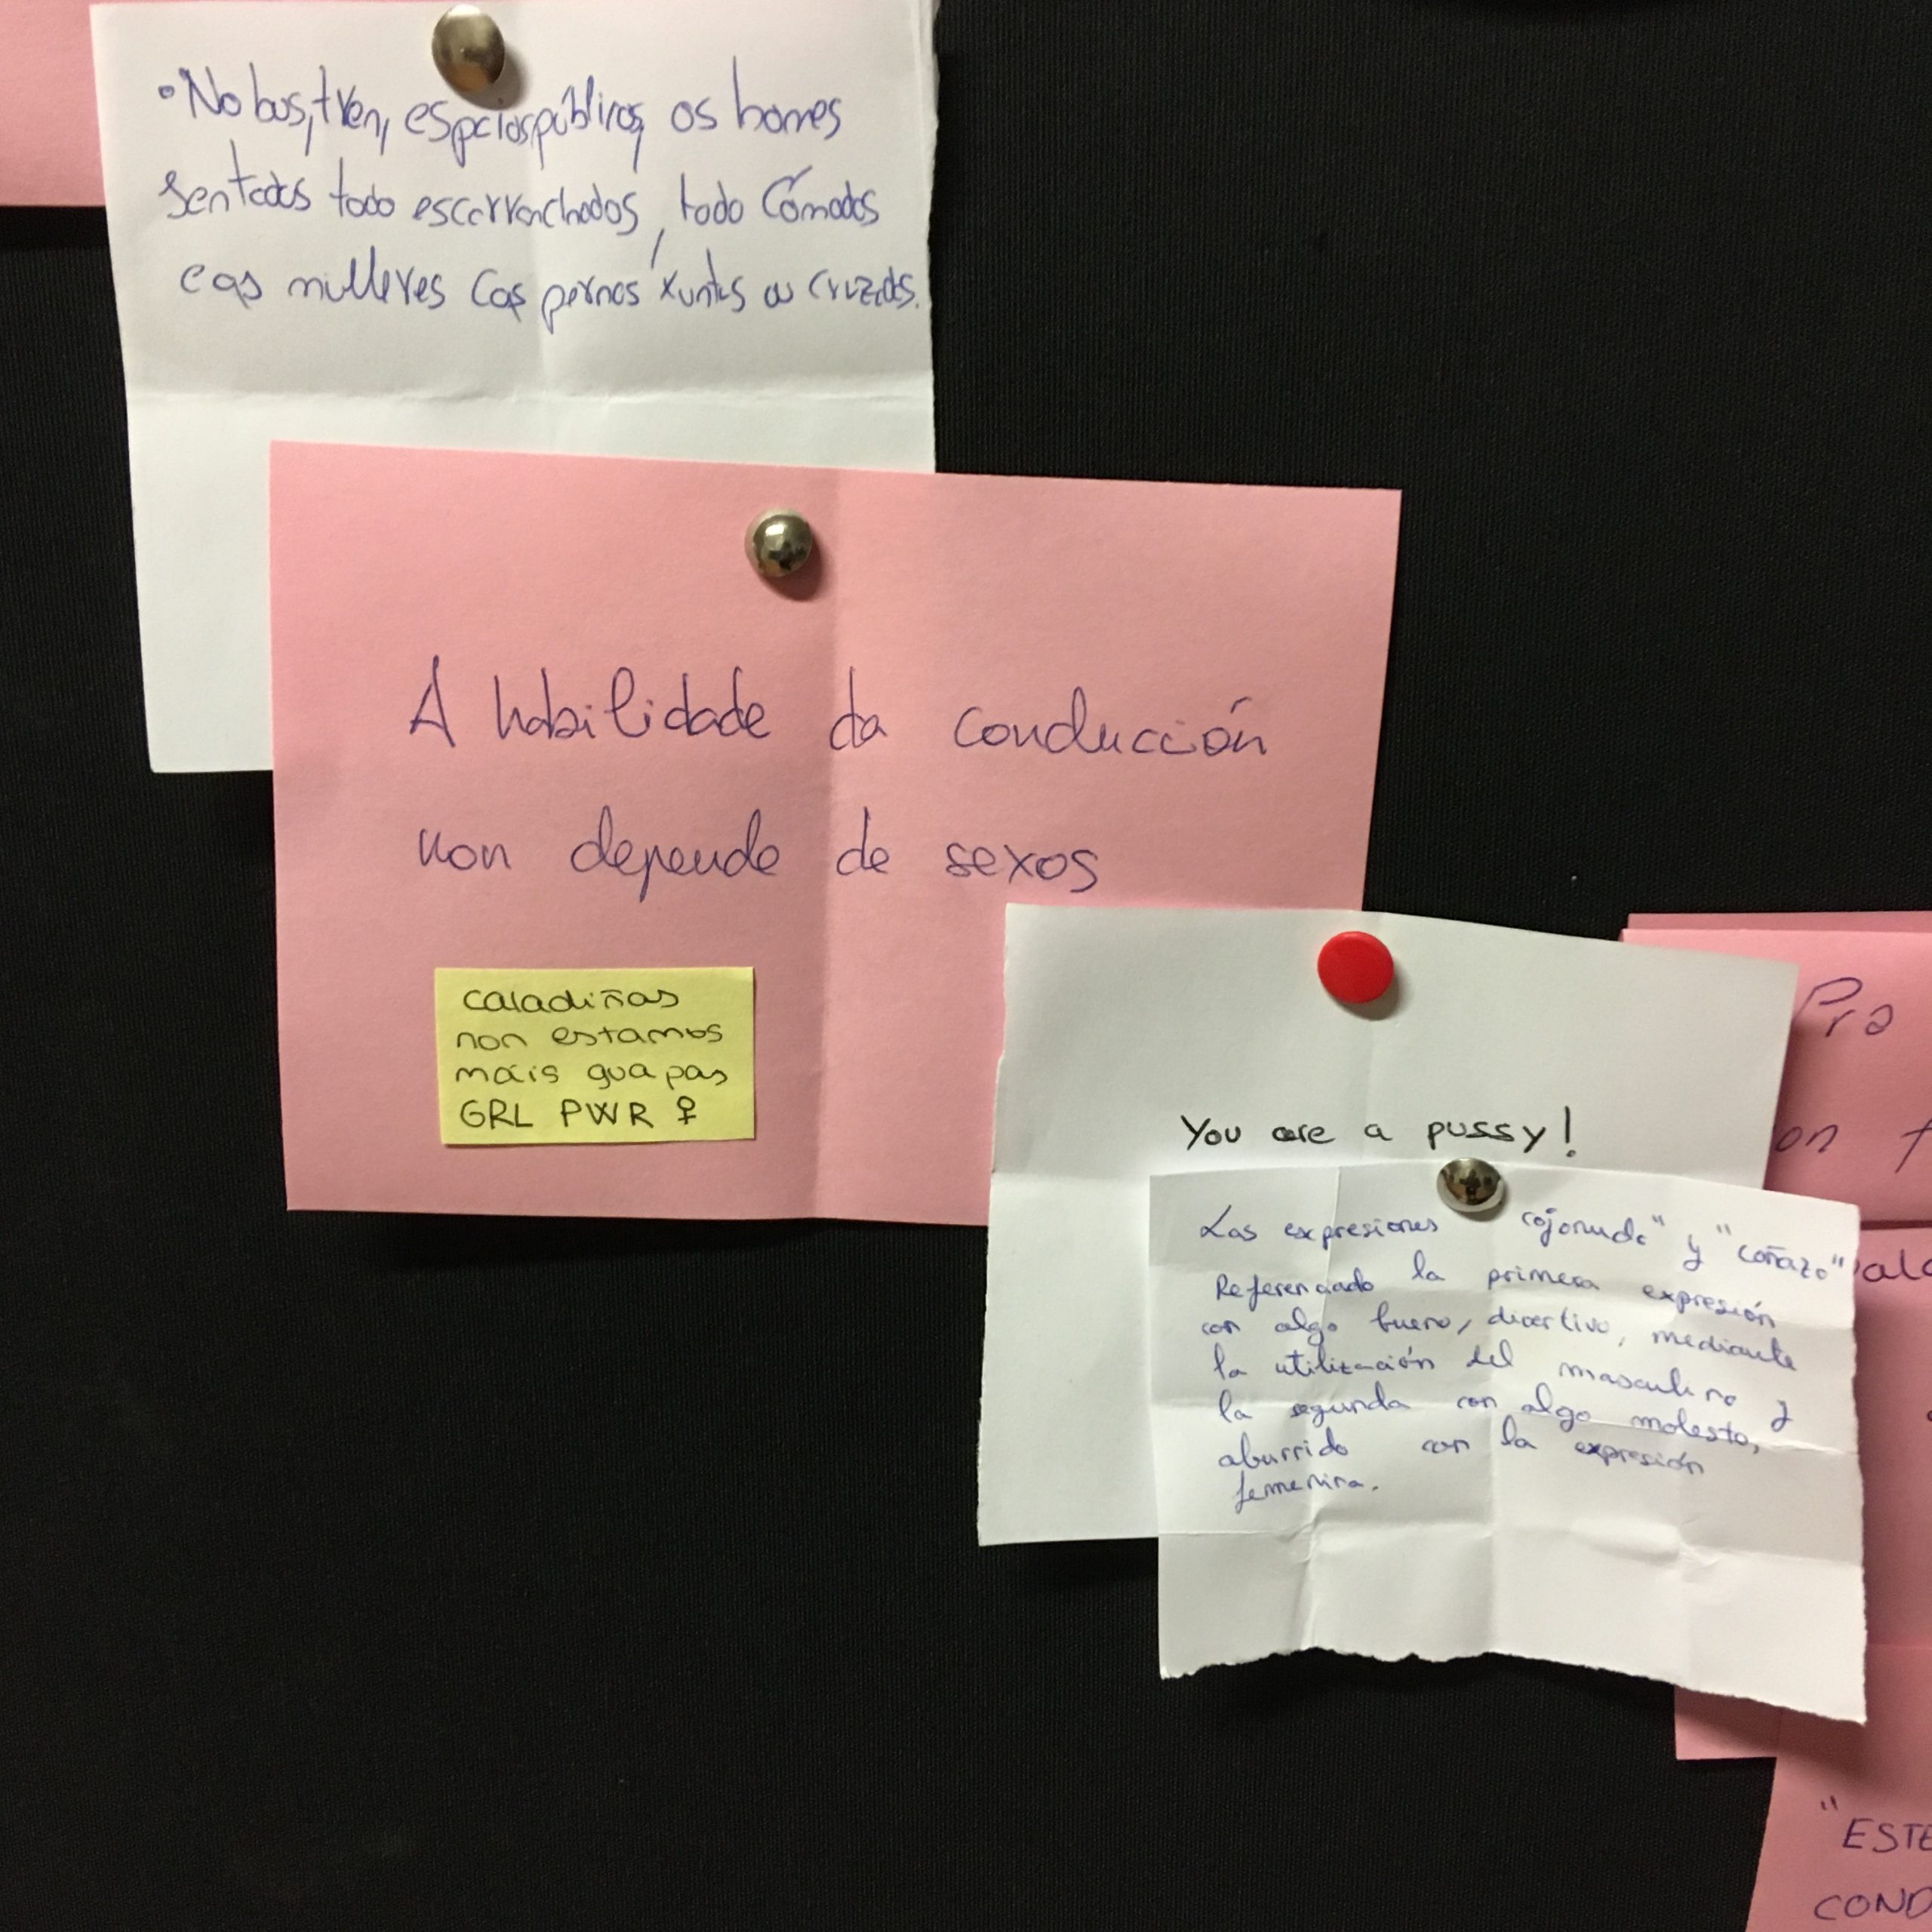 • No bus, tren, espacios públicos, os homes
sentados todo escarranchados, todo cómodos
e as mulleres cas pernas xuntas ou cruzadas.
A habilidade da conducción
non depende de sexos
caladiñas
non estamos
máis guapas
GRL PWR ♀
You are a pussy!
Las expresiones cojonudo" y "coñazo"
Referenciado la primera expresión
con algo bueno, divertivo, mediante
la utilización del masculino y
la segunda con algo molesto,
aburrido con la expresión
femenina.
Pra
on
"ESTE
COND